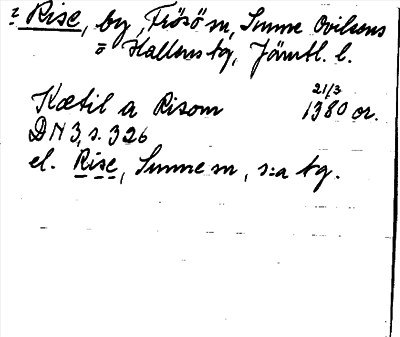 ? Rise, by, Frösö sn, Sunne Oviksens
o Hallens tg, Jämtl. l.
21/3
Kætil a Risom 1380 or.
DN 3, s. 326
el. Rise, Sunne sn, s:a tg.